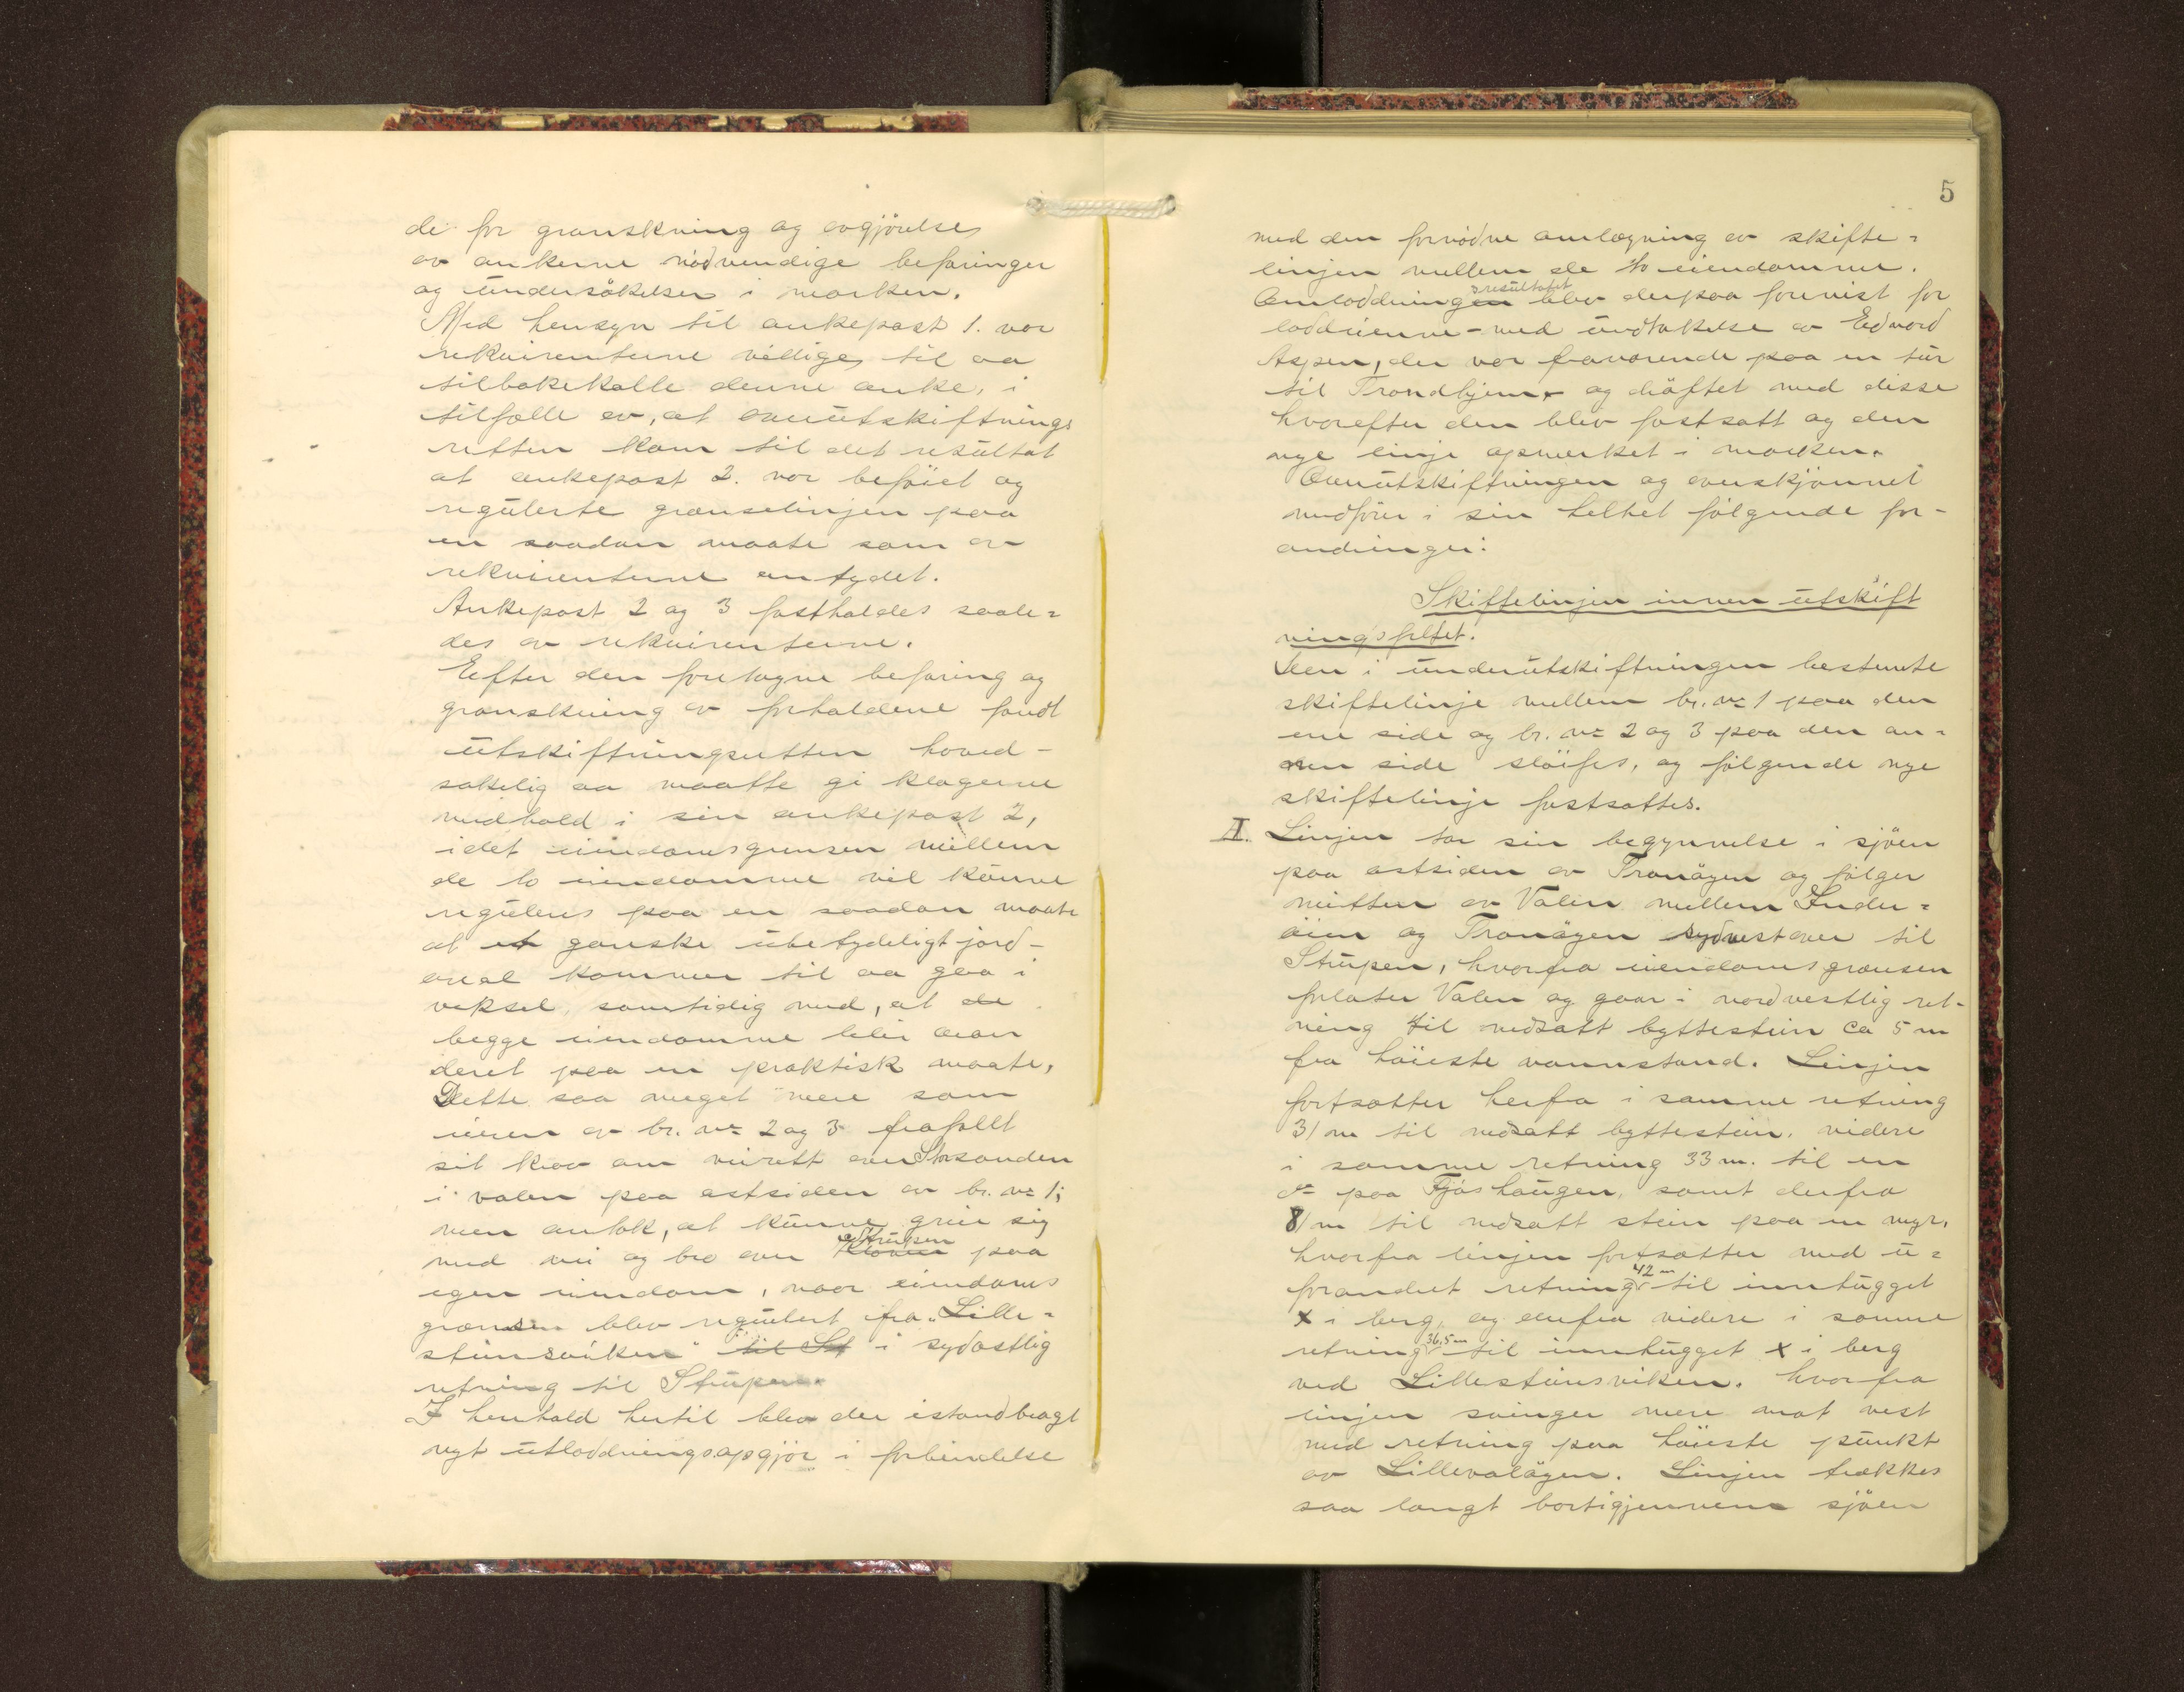 de for granskning og avgjörelse
av ankerne nödvendige befaringer
og undersökelser i marken.
Med hensyn til ankepost 1. var
rekvirenterne villige til aa
tilbakekalle denne anke, i
tilfælle av, at overutskiftnings
retten kom til det resultat
at ankepost 2. var beföiet og
regulerte grænselinjen paa
en saadan maate som av
rekvirenterne antydet.
Ankepost 2 og 3 fastholdes saale=
des av rekvirenterne.
Eefter den foretagne befaring og
granskning av forholdene fandt
utskiftningsretten hoved-
sakelig aa maatte gi klagerne
medhold i sin ankepost 2,
idet eiendomsgrensen mellem
de to eiendomme vil kunne
reguleres paa en saadan maate
at et ganske ubetydeligt jord-
areal kommer til aa gaa i
veksel, samtidig med, at de
begge eiendomme blir arron
deret paa en praktisk maate,
Dette saa meget mere som
eieren av br. nr 2 og 3 frafallt
sit krav om veirett over Storsanden
i valen paa østsiden av br. nr 1;
men antok, at kunne greie sig
Strupen
med vei og bro over paa
egen eiendom, naar eiendoms
grænsen blev regulert fra „Lille=
steinsviken" til St i sydøstlig
retning til Strupen.
I henhold hertil blev der istandbragt
nyt utlodningsopgjör i forbindelse
5
med den fornödne omlægning av skifte=
linjen mellem de to eiendomme.
resultatet
Omlodningen blev derpaa forevist for
lodeierne - med undtakelse av Edvard
Aspen, der var fraværende paa en tur
til Trondhjem, og dröftet med disse
hvorefter den blev fastsatt og den
nye linje opmerket i marken.
Overutskiftningen og overskjönnet
medförer i sin helhet fölgende for-
andringer:
Skiftelinjen innen utskift
ningsfeltet.
Den i underutskiftningen bestemte
skiftelinje mellem br. nr 1 paa den
ene side og br. nr 2 og 3 paa den an=
nen side slöifes, og fölgende nye
skiftelinje fastsattes.
I. Linjen tar sin begynnelse i sjöen
paa østsiden av Tranöyen og fölger
mitten av Valen mellem Inder=
öien og Tranöyen sydvestover til
Strupen, hvorfra eiendomsgrænsen
forlater Valen og gaar i nordvestlig ret-
ning til nedsatt byttestein ca 5 m
fra höieste vannstand. Linjen
fortsætter herfra i samme retning
31 m til nedsatt byttestein, videre
i samme retning 33 m. til en
do paa Fjøshaugen, samt derfra
81 m til nedsatt stein paa en myr,
hvorfra linjen fortsætter med u=
42 m
forandret retning til innhugget
x i berg, og derfra videre i samme
36,5 m
retning til innhugget x i berg
ved Lillesteinsviken. hvorfra
linjen svinger mere mot vest
med retning paa höieste punkt
av Lillevalöyen. Linjen trækkes
saa langt bortigjennem sjöen